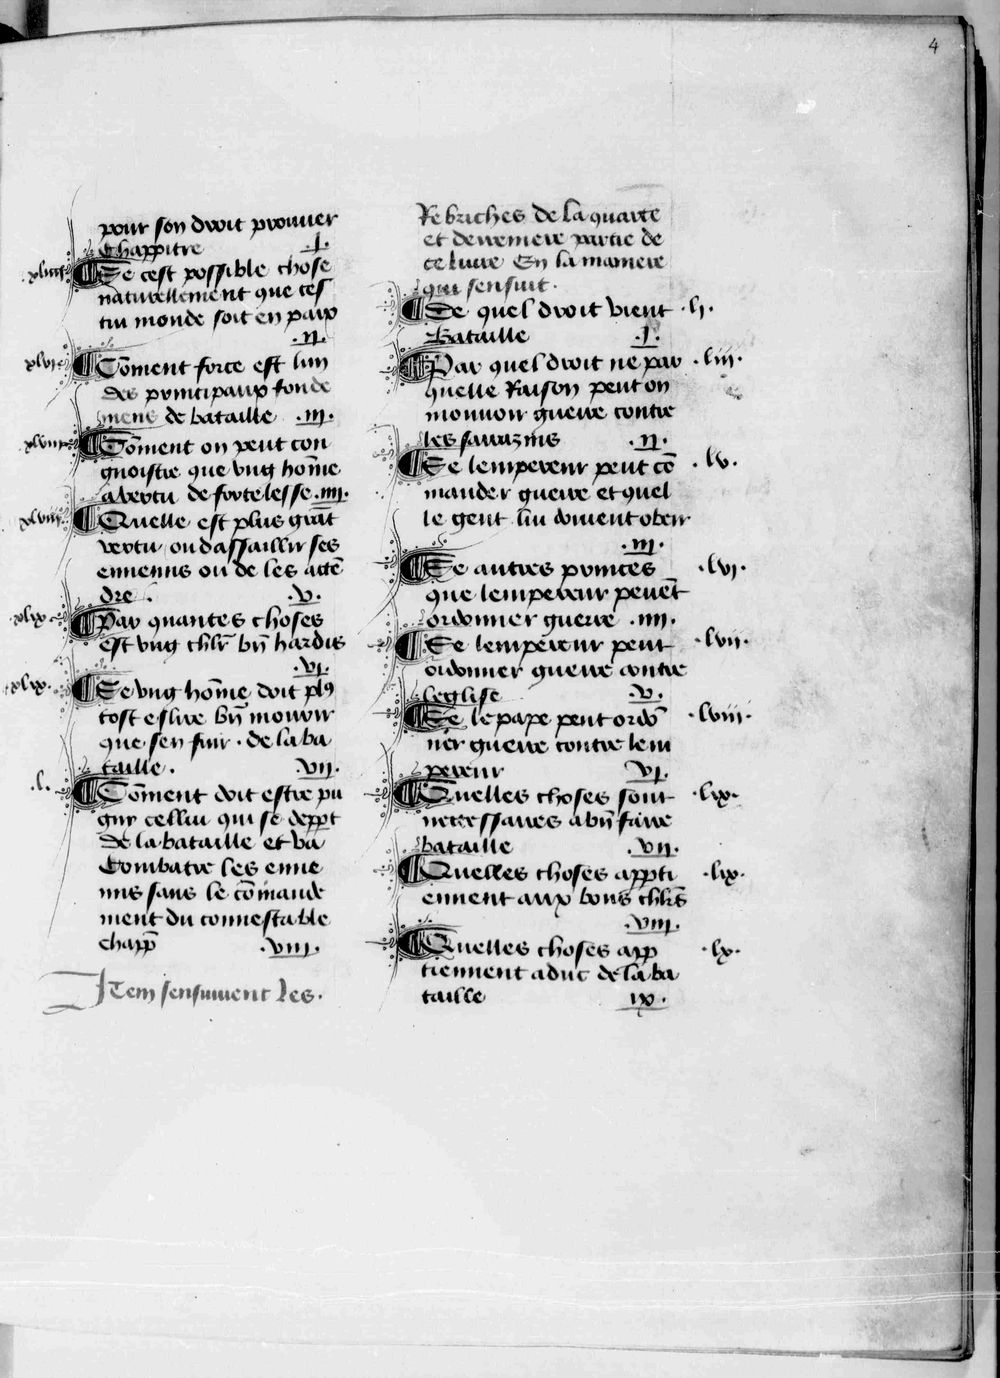 4
pour son droit prouuer
Chappitre .I.
.xlvi. Se cest possible chose
naturellement que ces
tui monde soit en paix
.II.
xlvi. Com̄ent force est lun
des principaux fonde
mens de bataille .III.
Com̄ent on peut con
gnoistre que vng hom̄e
a vertu de fortelesse .IIII.
xlviii. Quelle est plus grāt
vertu ou dassaillir ses
ennemis ou de les attē
dre . .V.
xlix. Par quantes choses
est vng chlr̄ bn̄ hardis
.VI.
xlix. Se vng hom̄e doit plꝰ
tost eslire bn̄ mourir
que sen fuir . de la ba
taille . .VII.
.l. Com̄ent doit estre pu
gny cellui qui se depp̄t
de la bataille et va
Combatre les enne
mis sans le com̄ande
ment du connestable
chapp̄ .VIII.
Item sensuiuent les .
Rebriches de la quarte
et derreniere partie de
ce liure En la maniere
qui sensuit .
De quel droit vient .li.
Bataille .I.
Par quel droit ne par .liii.
quelle Raison peut on
mouuoir guerre contre
les sarrazins .II.
Se lempereur peut cō .lv.
mander guerre et quel
le gent lui doiuent obeir
.III.
Se autres princes .lvi.
que lempereur peuēt
ordonner guerre .IIII.
Se lempereur peut .lvii.
ordonner guerre contre
leglise .V.
Se le pape peut ordō .lviii.
ner guerre contre lem
pereur .VI.
Quelles choses sont .lix.
necessaires a bn̄ faire
bataille .VII.
Quelles choses appti .lix.
ennent aux bons chlr̄s
.VIII.
Quelles choses app .lx.
tiennent a duc de la ba
taille .IX.